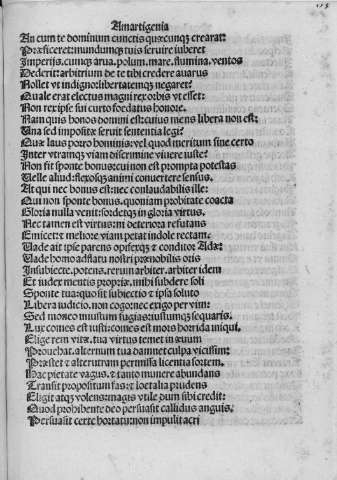 Amartigenia
An cum te dominum cunctis quæcunq; crearat:
Præficeret: mundumq; tuis seruire iuberet
Imperijs. cumq; arua. polum. mare. flumina. ventos
Dederit: arbitrium de te tibi credere auarus
Nollet vt indigno: libertatemq; negaret?
Quale erat electus magni rex orbis vt esset:
Non rex ipse sui curto fœdatus honore.
Nam quis honos domini est: cuius mens libera non est:
Una sed impositæ seruit sententia legi?
Quæ laus porro hominis: vel quod meritum sine certo
Inter vtramq; viam discrimine viuere iuste?
Non fit sponte bonus: cui non est prompta potestas
Uelle aliud: flexosq; animi conuertere sensus.
At qui nec bonus est: nec conlaudabilis ille:
Qui non sponte bonus. quoniam probitate coacta
Gloria nulla venit: sordetq; in gloria virtus.
Nec tamen est virtus: ni deteriora refutans
Emicet: & meliore viam petat indole rectam.
Uade ait ipse parens opifexq; & conditor Adæ:
Uade homo adflatu nostri prænobilis oris
Insubiecte. potens. rerum arbiter. arbiter idem
Et iudex mentis propriæ. mihi subdere soli
Sponte tua: quo sit subiectio & ipsa soluto
Libera iudicio. non cogo: nec exigo per vim:
Sed moneo iniustum fugias: iustumq; sequaris.
Lux comes est iusti: comes est mors horrida iniqui.
Elige rem vitæ. tua virtus temet in æuum
Prouehat. alternum tua damnet culpa vicissim:
Præstet & alterutram permissa licentia sortem.
Hac pietate vagus. & tanto munere abundans
Transit propositum fas: & loetalia prudens
Eligit atq; volens: magis vtile dum sibi credit:
Quod prohibente deo persuasit callidus anguis.
Persuasit certe hortatu: non impulit acri